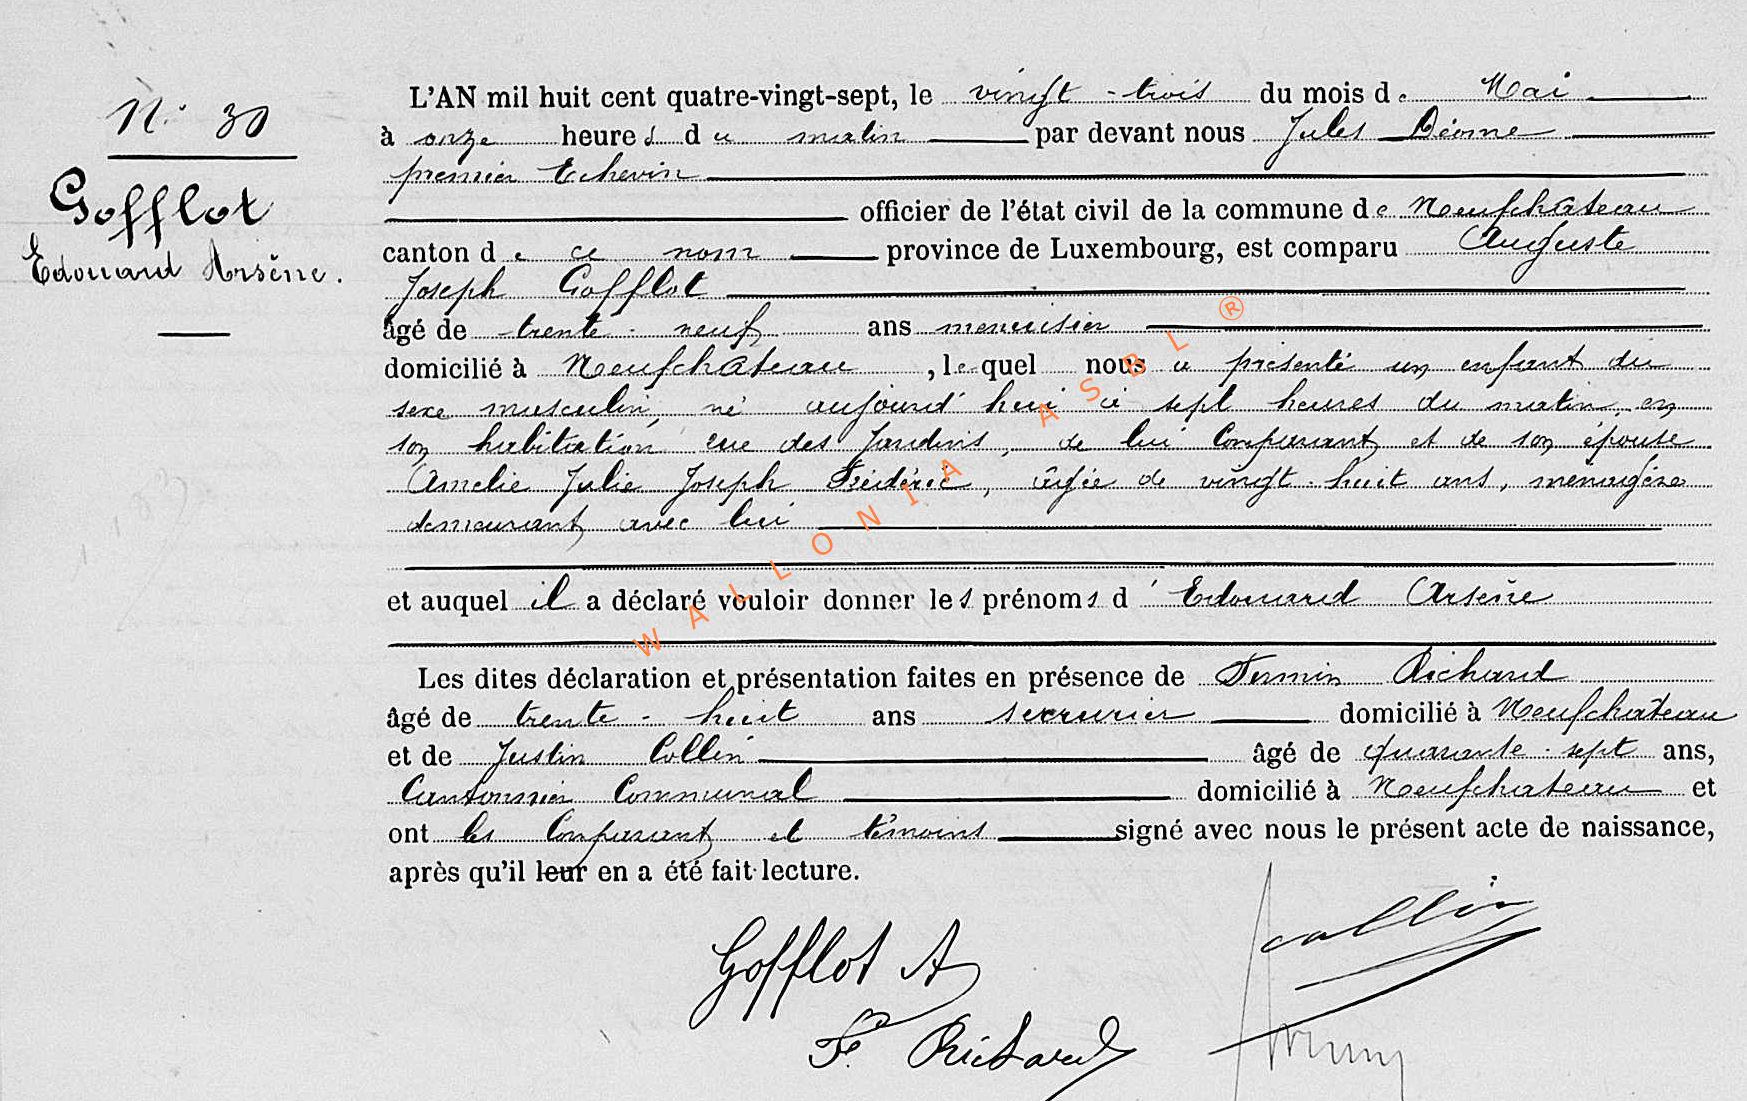 N° 30
Gofflot
Edouard Arsène.
L'AN mil huit cent quatre-vingt-sept, le vingt-trois du mois de Mai
à onze heures du matin par devant nous Jules
premier Echevin
officier de l'état civil de la commune de Neufchâteau
canton de ce nom province de Luxembourg, est comparu Auguste
Joseph Gofflot
âgé de trente-neuf ans menuisier
domicilié à Neufchâteau, lequel nous a présenté un enfant du
sexe masculin, né aujourd'hui à sept heures du matin, en
son habitation, rue des Jardins, de lui Comparant et de son épouse
Amelie Julie Joseph Frédéric, âgée de vingt-huit ans, ménagère
demeurant avec lui
et auquel il a déclaré vouloir donner les prénoms d'Edouard Arsène
Les dites déclaration et présentation faites en présence de Firmin Richard
âgé de trente-huit ans serrurier domicilié à Neufchateau
et de Justin Collin âgé de quarante-sept ans,
Cantonnier Communal domicilié à Neufchateau et
ont les Comparant et témoins signé avec nous le présent acte de naissance,
après qu'il leur en a été fait lecture.
Collin
Gofflot A
F. Richard
WALLONIA ASBL ®